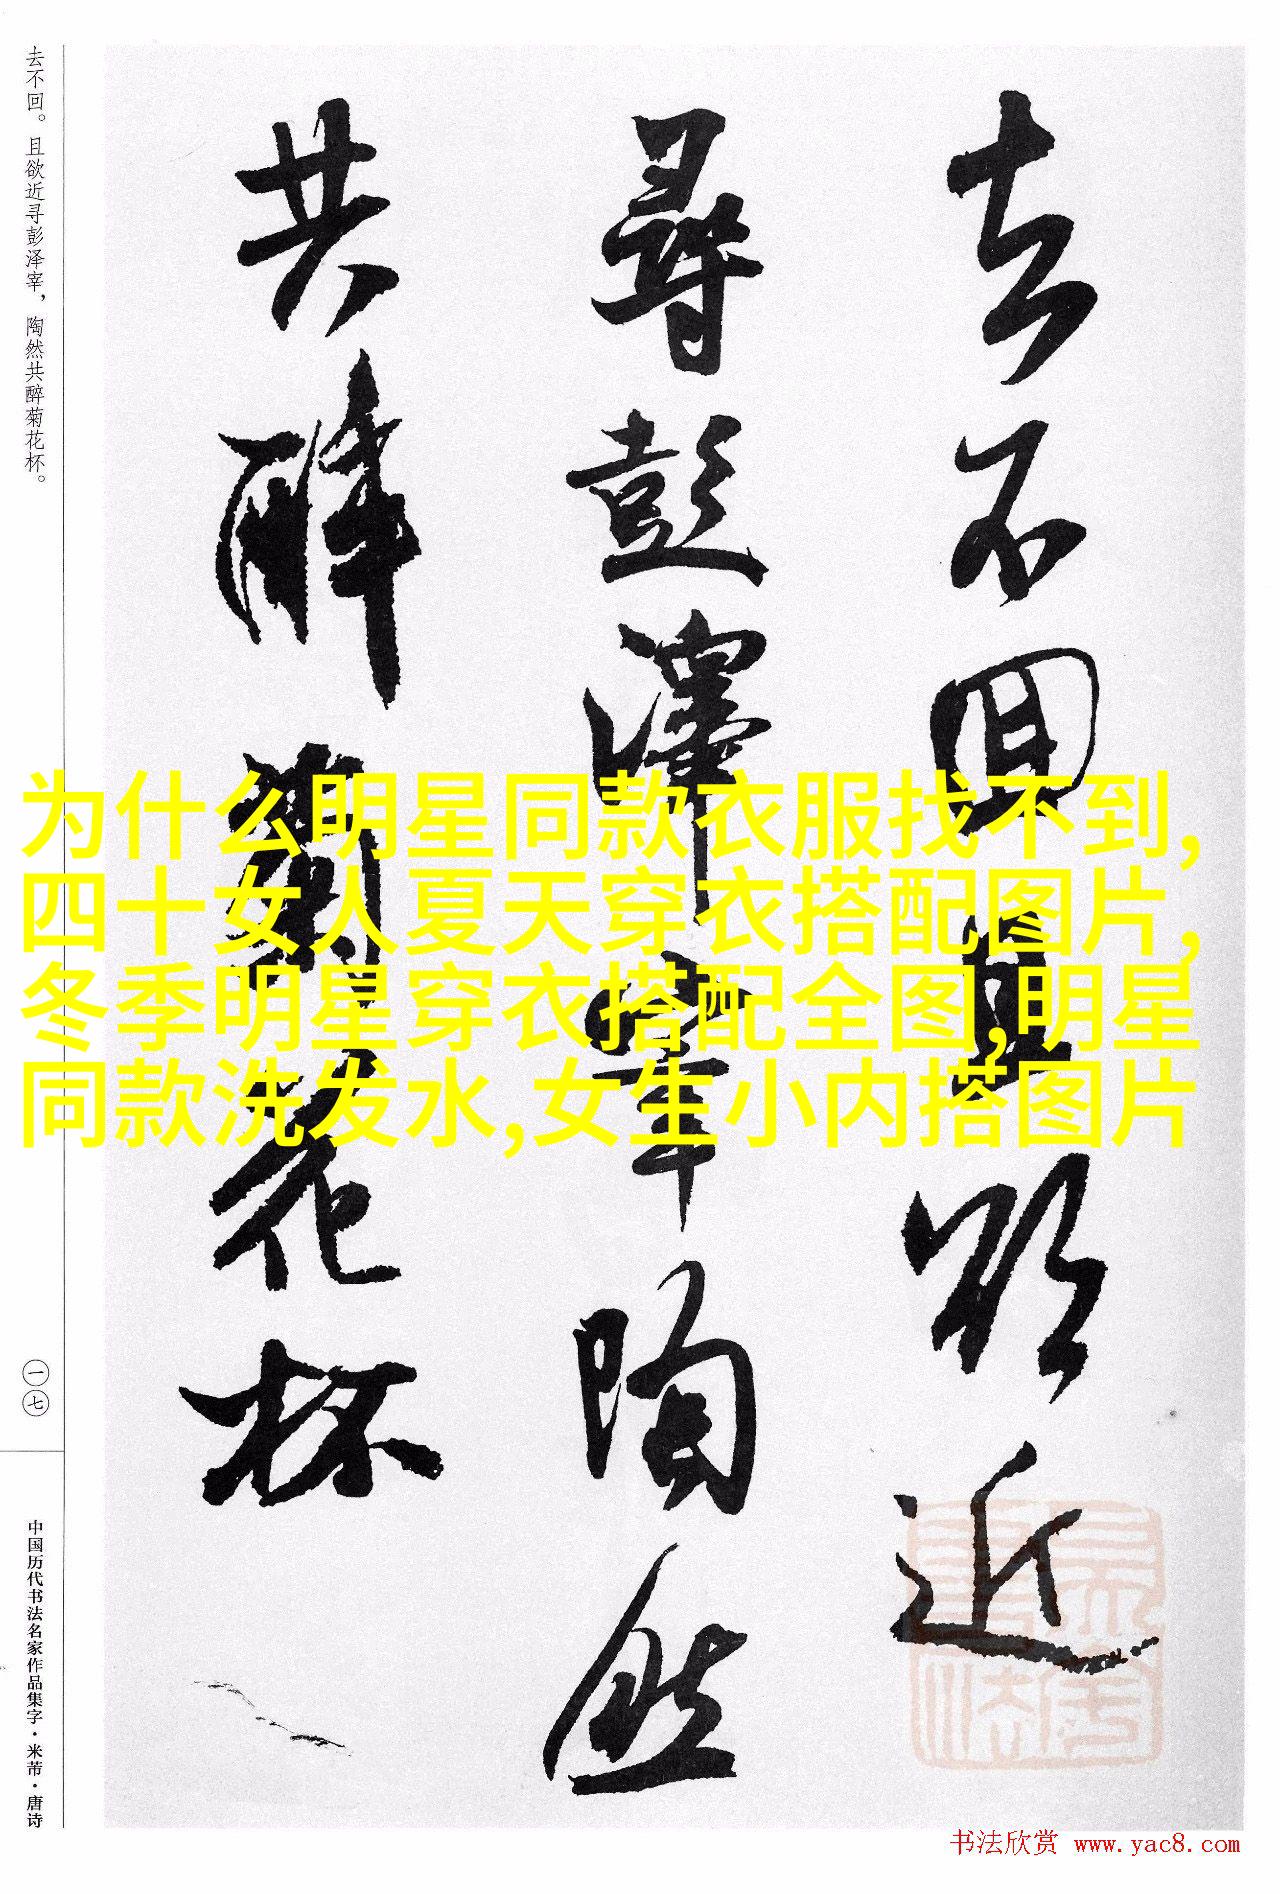 去不回且欲近
尋彭澤宰陶然
共醉菊花杯
去不回。且欲近寻彭泽宰，陶然共醉菊花杯。
一七
中国历代书法名家作品集字·米芾·唐诗
为什么明星同款衣服找不到,
四十女人夏天穿衣搭配图片,
冬季明星穿衣搭配全图,明星
同款洗发水,女生小内搭图片
书法欣赏 www.yac8.com